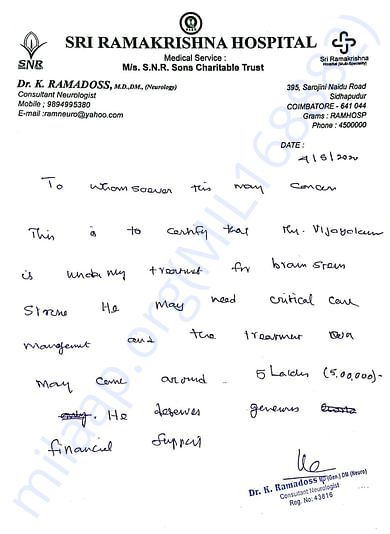 SRI RAMAKRISHNA HOSPITAL
Medical Service :
M/s. S.N.R. Sons Charitable Trust
SNR
Sri Ramakrishna
Hospital (Multi-Specialty)
Dr. K. RAMADOSS, M.D.,DM., (Neurology)
Consultant Neurologist
Mobile ; 9894995380
E-mail :ramneuro@yahoo.com
395, Sarojini Naidu Road
Sidhapudur
COIMBATORE - 641 044
Grams : RAMHOSP
Phone : 4500000
DATE :
4/5/2020
To whomsoever this may concern
This is to certify that Mr. Vijayakumar
is under my treatment for brain stem
Stroke He may need critical care
management and the treatment
may come around 5 Lakhs (5,00,000)-
He deserves generous
financial support
Dr. K. Ramadoss MD (Gen.) DM (Neuro)
Consultant Neurologist
Reg. No: 43816
milaap.org(MIL168482)